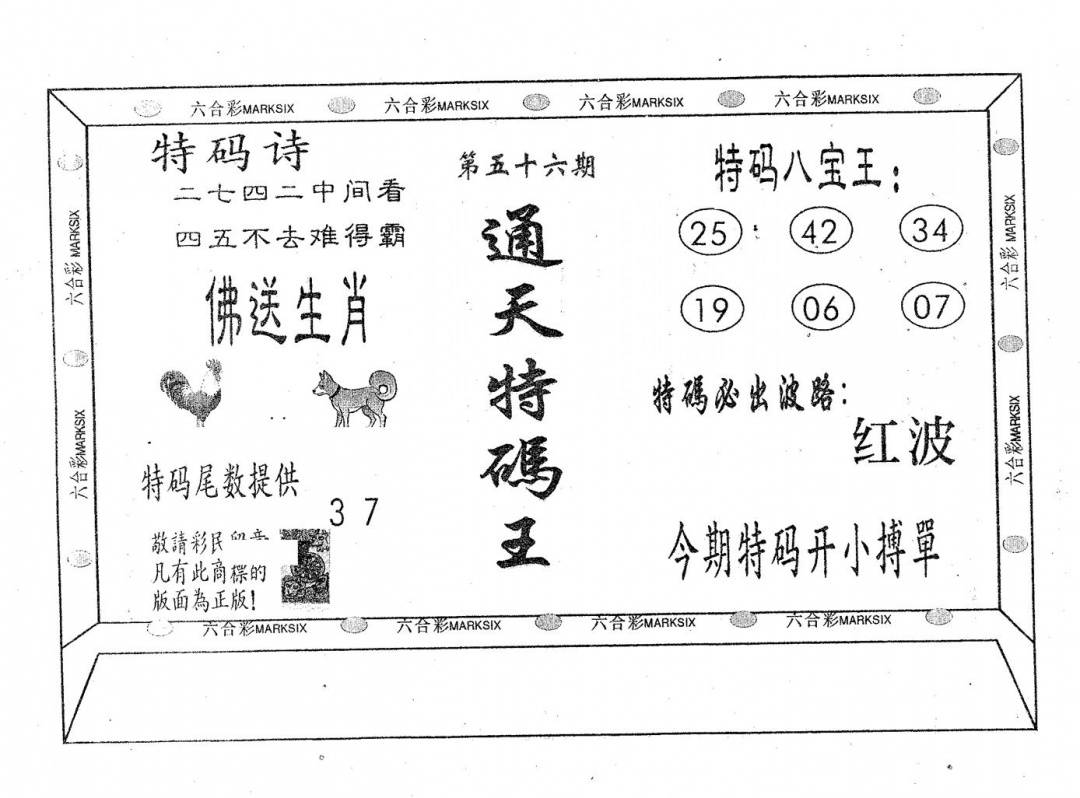 六合彩MARKSIX 六合彩MARKSIX 六合彩MARKSIX 六合彩MARKSIX
六合彩 MARKSIX
六合彩MARKSIX
特码诗
二七四二中间看
四五不去难得霸
佛送生肖
特码尾数提供
3 7
敬請彩民
凡有此商標的
版面為正版!
第五十六期
通天特碼王
特码八宝王:
25 42 34
19 06 07
特碼必出波路:
红波
今期特码开小搏單
六合彩 MARKSIX
六合彩MARKSIX
六合彩MARKSIX 六合彩MARKSIX 六合彩MARKSIX 六合彩MARKSIX